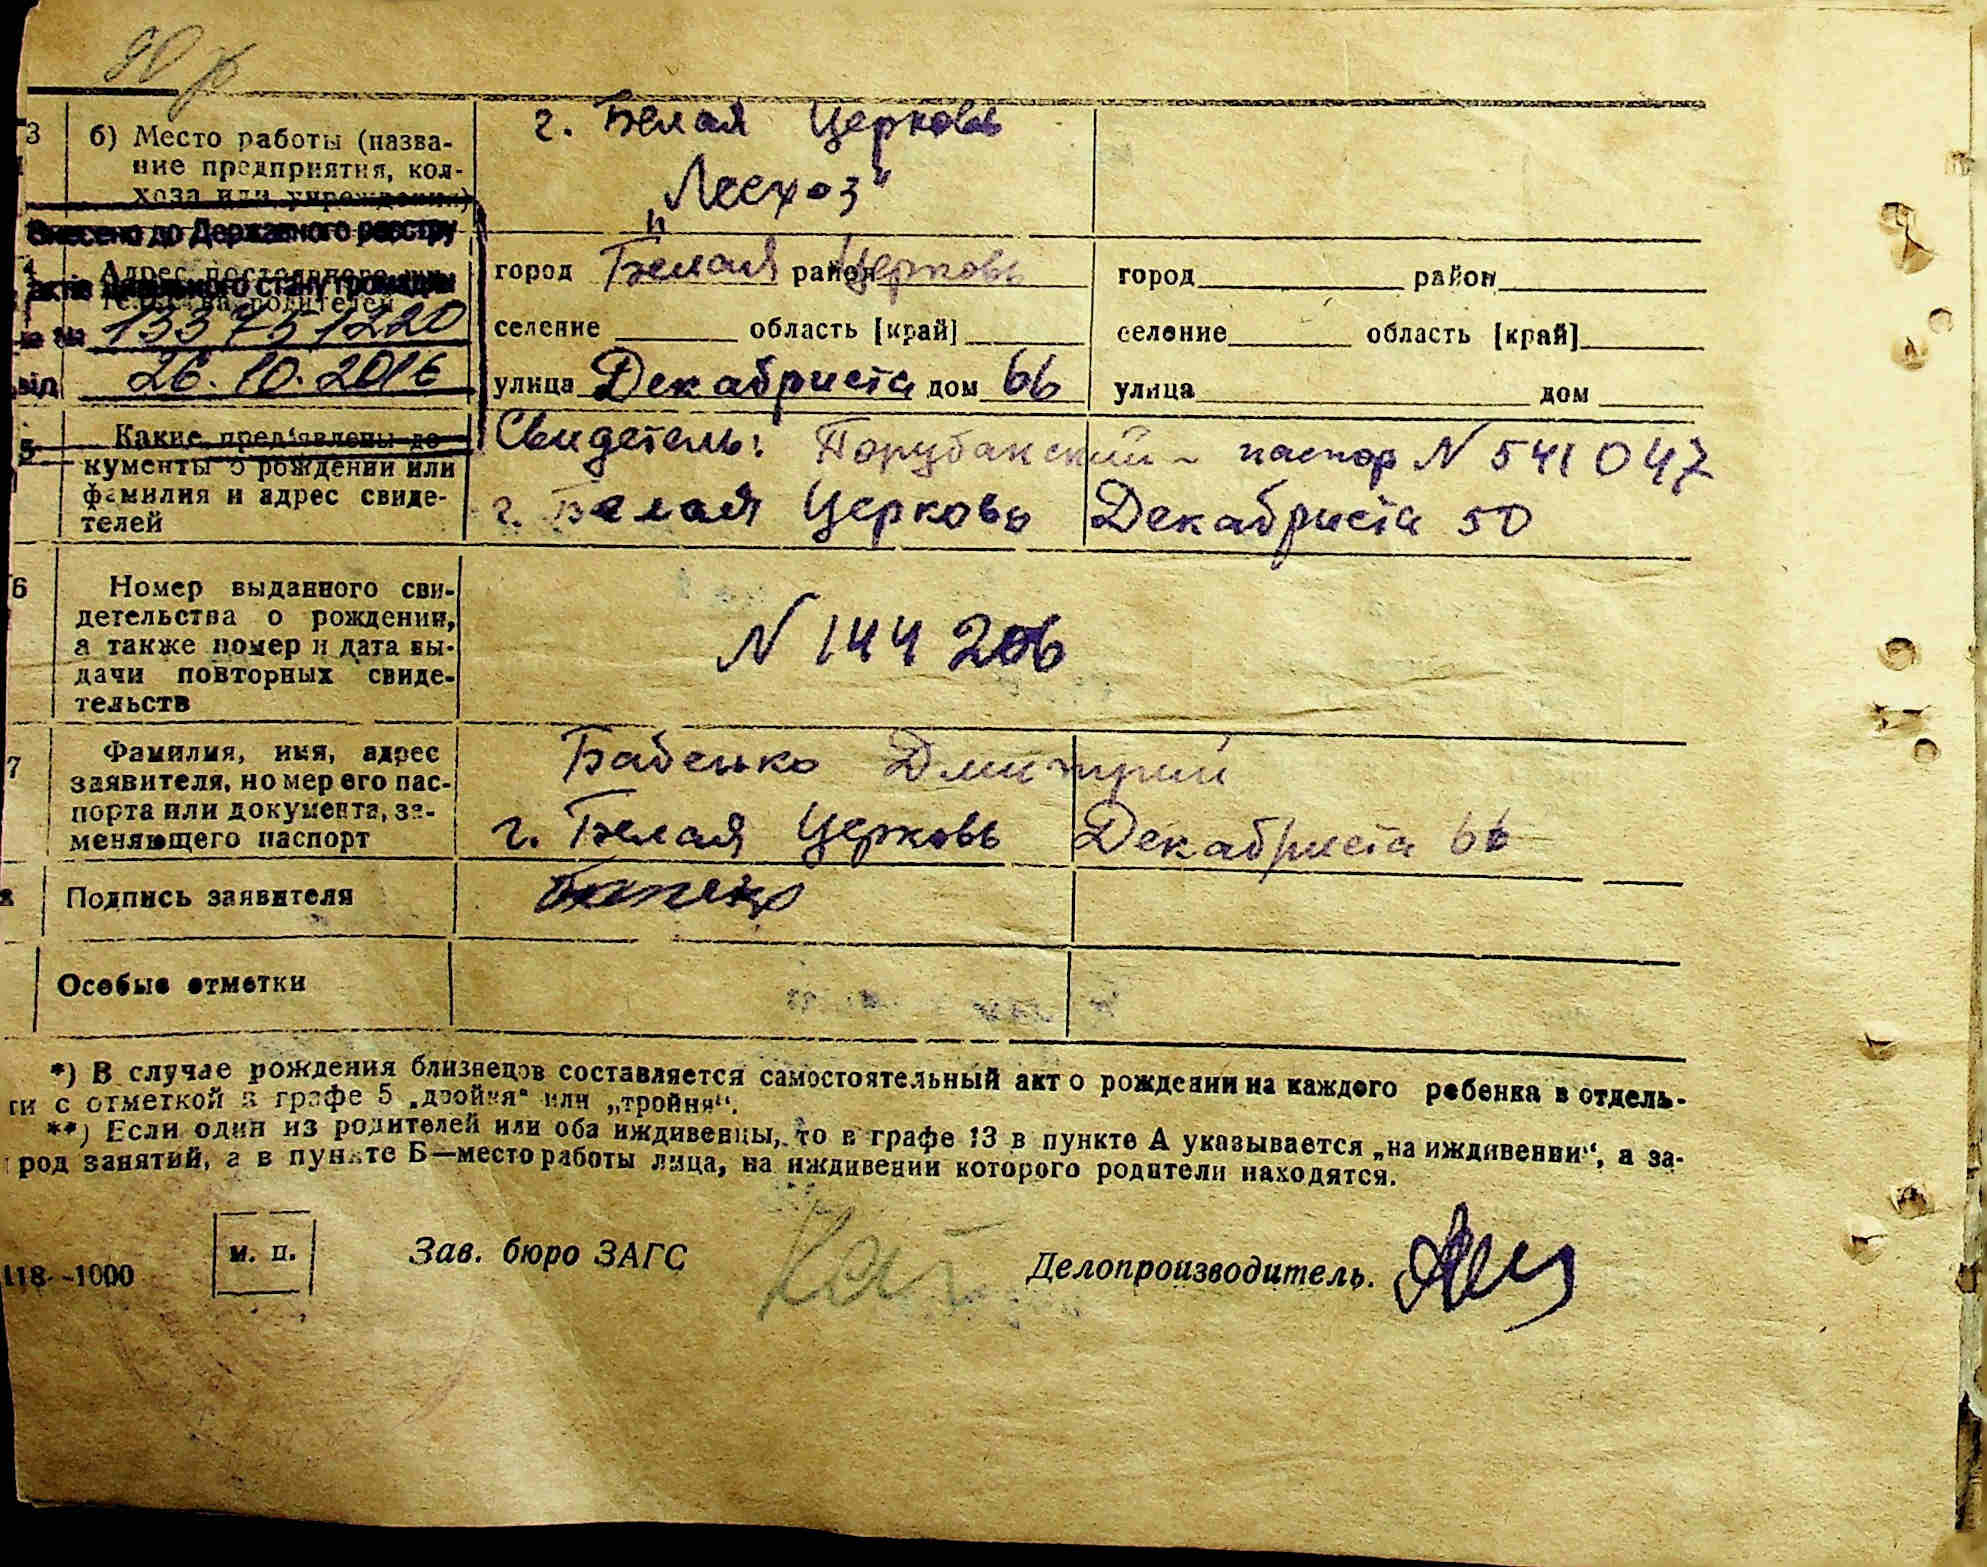 3 б) Место работы (назва-
ние предприятия, кол-
хоза или учреждения)
г. Белая Церковь
„Лесхоз"
Внесено до Державного реєстру
актів цивільного стану громадян
Адрес постоянного жи-
тельства родителей
за № 133751220
від 26.10.2016
город Белая район Церковь
селение область [край]
улица Декабриста дом 66
город район
селение область [край]
улица дом
5 Какие предъявлены до-
кументы о рождении или
фамилия и адрес свиде-
телей
Свидетель: Порубанский - паспор N 541047
г. Белая Церковь Декабриста 50
6 Номер выданного сви-
детельства о рождении,
а также номер и дата вы-
дачи повторных свиде-
тельств
N 144206
7 Фамилия, имя, адрес
заявителя, номер его пас-
порта или документа, за-
меняющего паспорт
Бабенко Дмитрий
г. Белая Церковь Декабриста 66
8 Подпись заявителя
Особые отметки
*) В случае рождения близнецов составляется самостоятельный акт о рождении на каждого ребенка в отдель-
ти с отметкой в графе 5 „двойня" или „тройня".
**) Если один из родителей или оба иждивенцы, то в графе 13 в пункте А указывается „на иждивении", а за-
род занятий, а в пункте Б—место работы лица, на иждивении которого родители находятся.
118--1000
м. п.
Зав. бюро ЗАГС
Делопроизводитель.